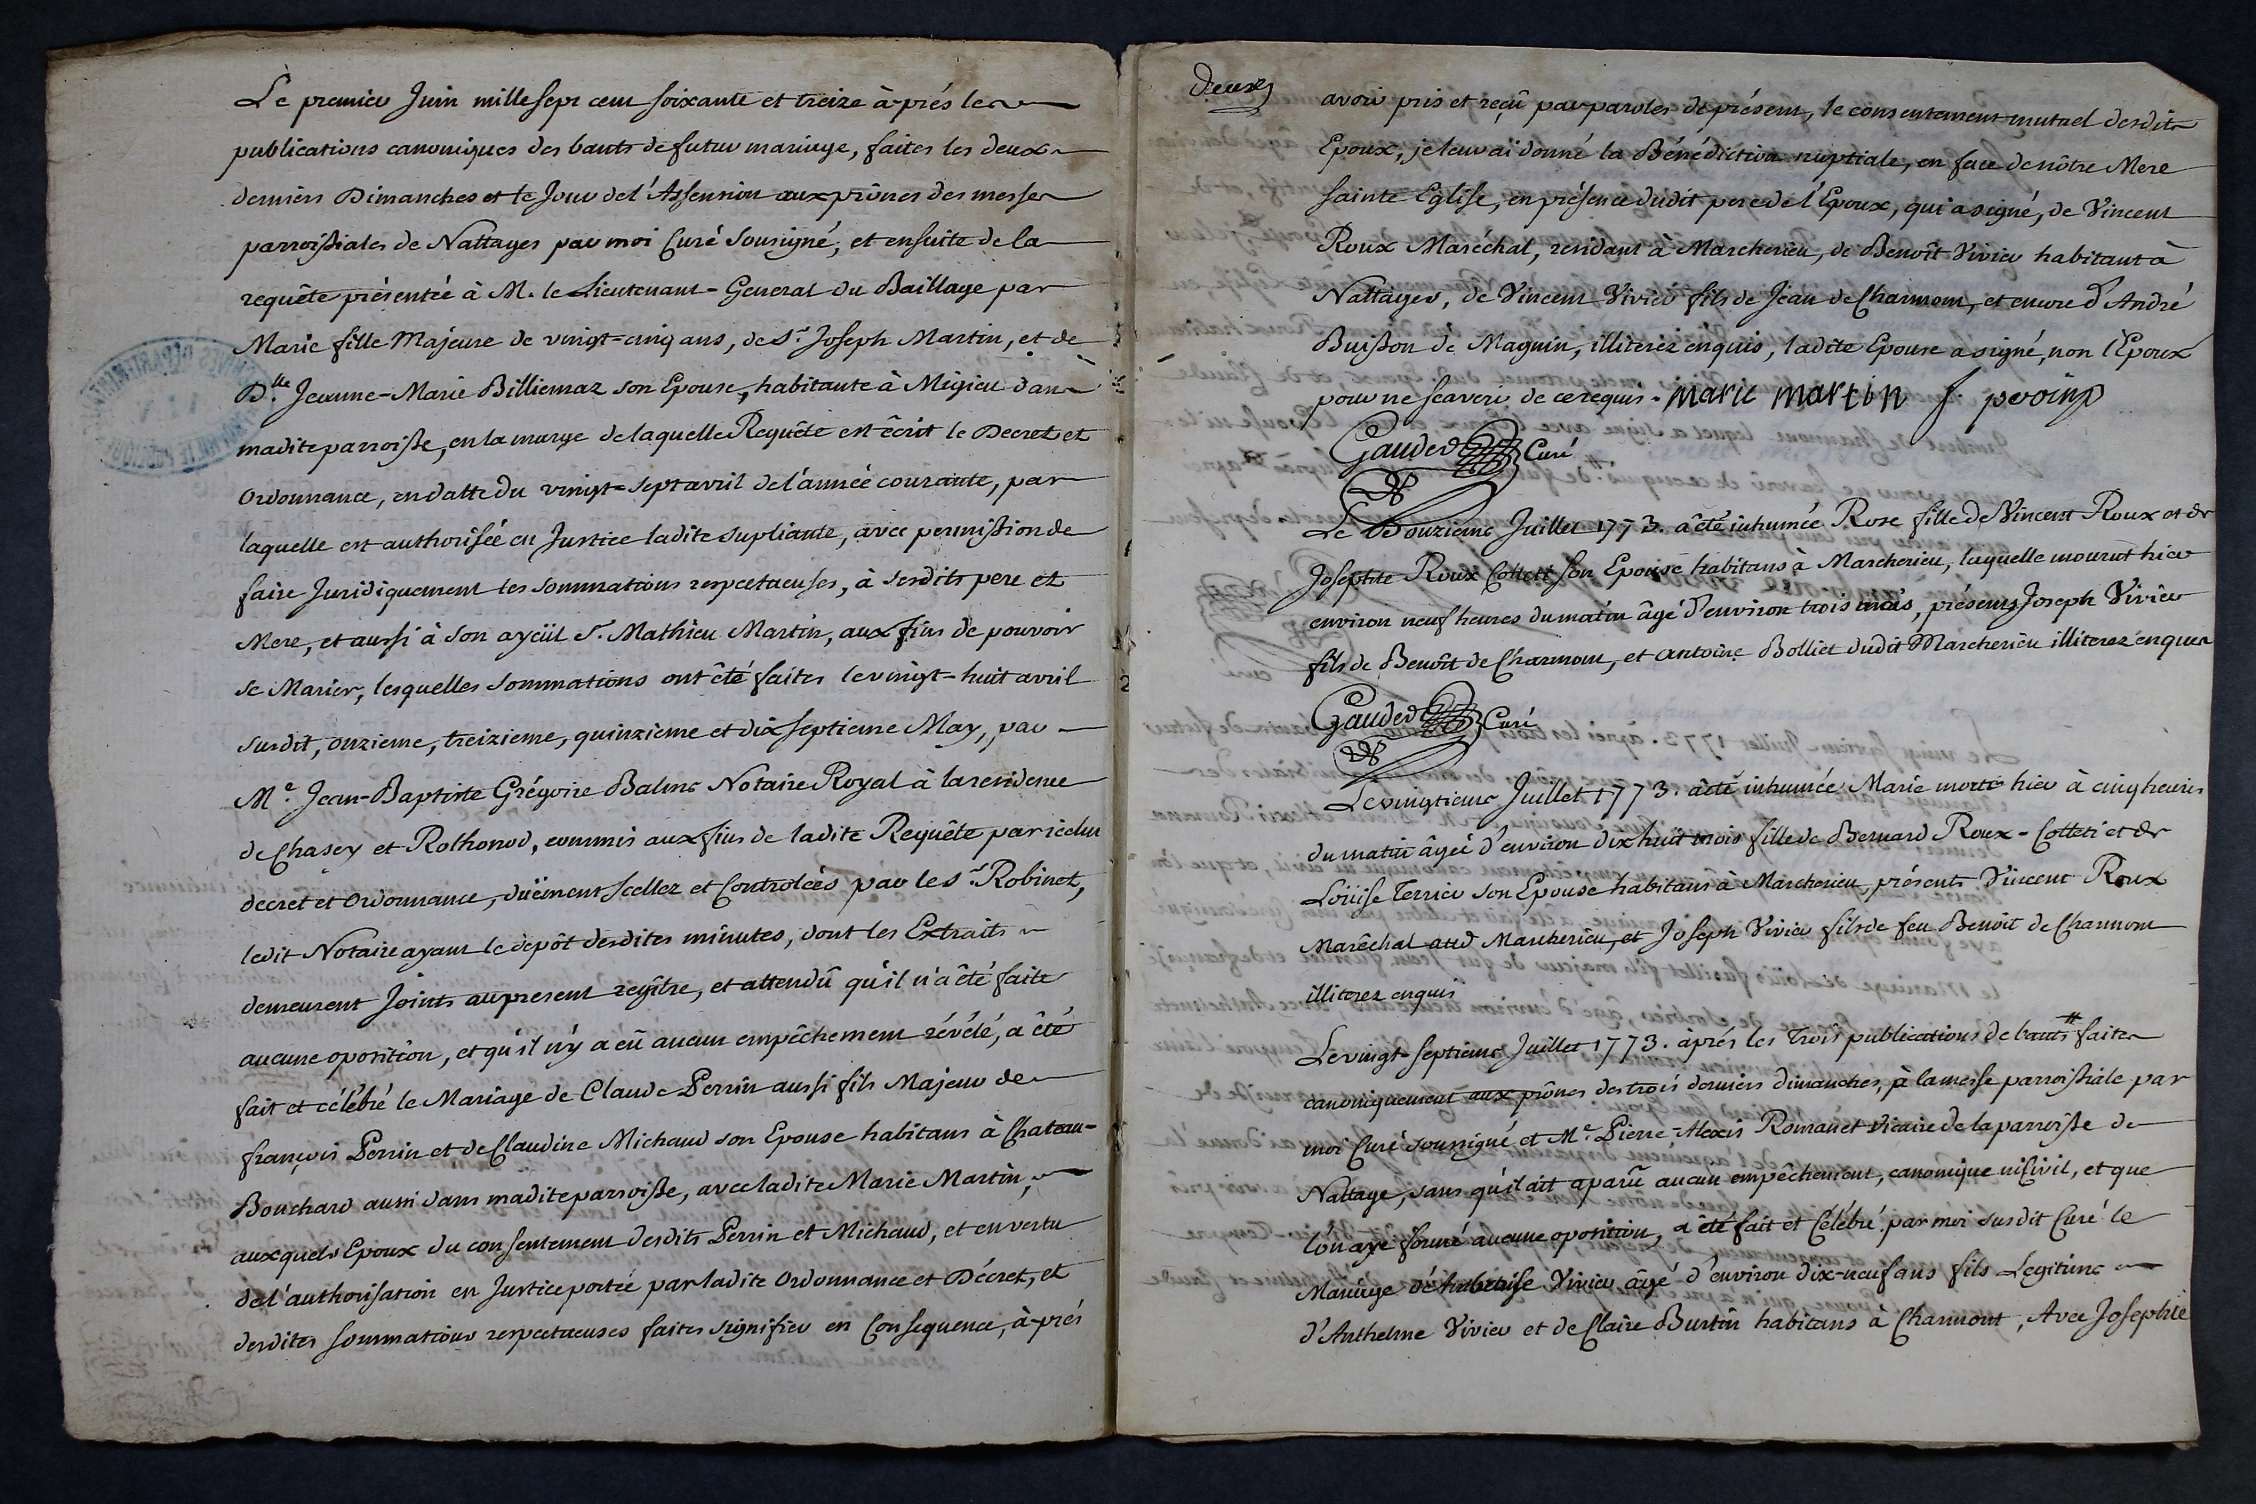 Le premier Juin mille sept cent soixante et treize à-prés les
publications canoniques des bants de futur mariage, faites les deux
derniers Dimanches et le Jour de l'Assension aux prônes des messes
parroissiales de Nattages par moi Curé sousigné, et ensuite de la
requête présentée à M. le Lieutenant-General du Baillage par
Marie fille Majeure de vingt-cinq ans, de Sr. Joseph Martin, et de
Dlle. Jeanne-Marie Billiemaz son Epouse, habitante à Migieu dans
madite parroisse, en la marge de laquelle Requête est êcrit le Decret et
Ordonnance, en datte du vingt-sept avril de l'année courante, par
laquelle est authorisée en Justice ladite supliante, avec permission de
faire Juridiquement les sommations respectueuses, à sesdits pere et
Mere, et aussi à son ayeül Sr. Mathieu Martin, aux fins de pouvoir
se Marier, lesquelles sommations ont êté faites le vingt-huit avril
susdit, onzieme, treizieme, quinzieme et dix septieme May, par
Me. Jean-Baptiste Grégoire Balme Notaire Royal à la residence
de Chasey et Rothonod, commis aux fins de ladite Requête par iceluy
decret et Ordonnance, duëment scellez et Controlées par le Sr. Robinet,
ledit Notaire ayant le depôt desdites minutes, dont les Extraits
demeurent Joints au present regître, et attendû qu'il n'a êté faite
aucune oposition, et qu'il n'y a eû aucun empêchement révélé, a êté
fait et célébré le Mariage de Claude Perrin aussi fils Majeur de
françois Perrin et de Claudine Michaud son Epouse habitans à Chateau-
Bouchard aussi dans madite parroisse, avec ladite Marie Martin,
auxquels Epoux du consentement desdits Perrin et Michaud, et en vertu
de l'authorisation en Justice portée par ladite Ordonnance et Décret, et
desdites sommations respectueuses faites signifier en Consequence, à-prés
Deux
avoir pris et reçû par paroles de présent, le consentement mutuel desdits
Epoux, je leur ai donné la Bénédiction nuptiale, en face de nôtre Mere
sainte Eglise, en présence dudit pere de l'Epoux, qui a signé, de Vincent
Roux Maréchal, residant à Marcherieu, de Benoît Vivier habitant à
Nattages, de Vincent Vivier fils de Jean de Charmont, et encore d'André
Buisson de Magnin, illiterez enquis, ladite Epouse a signé, non l'Epoux
pour ne sçavoir de ce requis. marie martin f peroins
Gauded Curé
Le Douzieme Juillet 1773. a êté inhumée Rose fille de Vincent Roux et de
Josephte Roux Collett son Epouse habitans à Marcherieu, laquelle mourut hier
environ neuf heures du matin âgé d'environ trois mois, présents Joseph Vivier
fils de Benoît de Charmont, et antoine Bolliet dudit Marcherieu illiterez enquis
Gauded Curé
Le vingtieme Juillet 1773. a êté inhumée Marie morte hier à cinq heures
du matin âgée d'environ dix huit mois fille de Bernard Roux-Colleti et de
Loüise Terrier son Epouse habitans à Marcherieu, présents Vincent Roux
Marêchal aud Marcherieu, et Joseph Vivier fils de feu Benoît de Charmont
illiterez enquis
Le vingt-septieme Juillet 1773. àprés les Trois publications de bants faites
canoniquement aux prônes des trois derniers dimanches, à la messe parroissiale par
moi Curé soussigné et Me. Pierre-Alexis Romanet vicaire de la parroisse de
Nattage, sans qu'il ait aparû aucun empêchement, canonique ni Sivil, et que
l'on aye formé aucune oposition, a êté fait et Célébré par moi susdit Curé le
Mariage d'Anthelme Vivier âgé d'environ dix-neuf ans fils Legitime
d'Anthelme Vivier et de Claire Burtin habitans à Charmont, Avec Josephte